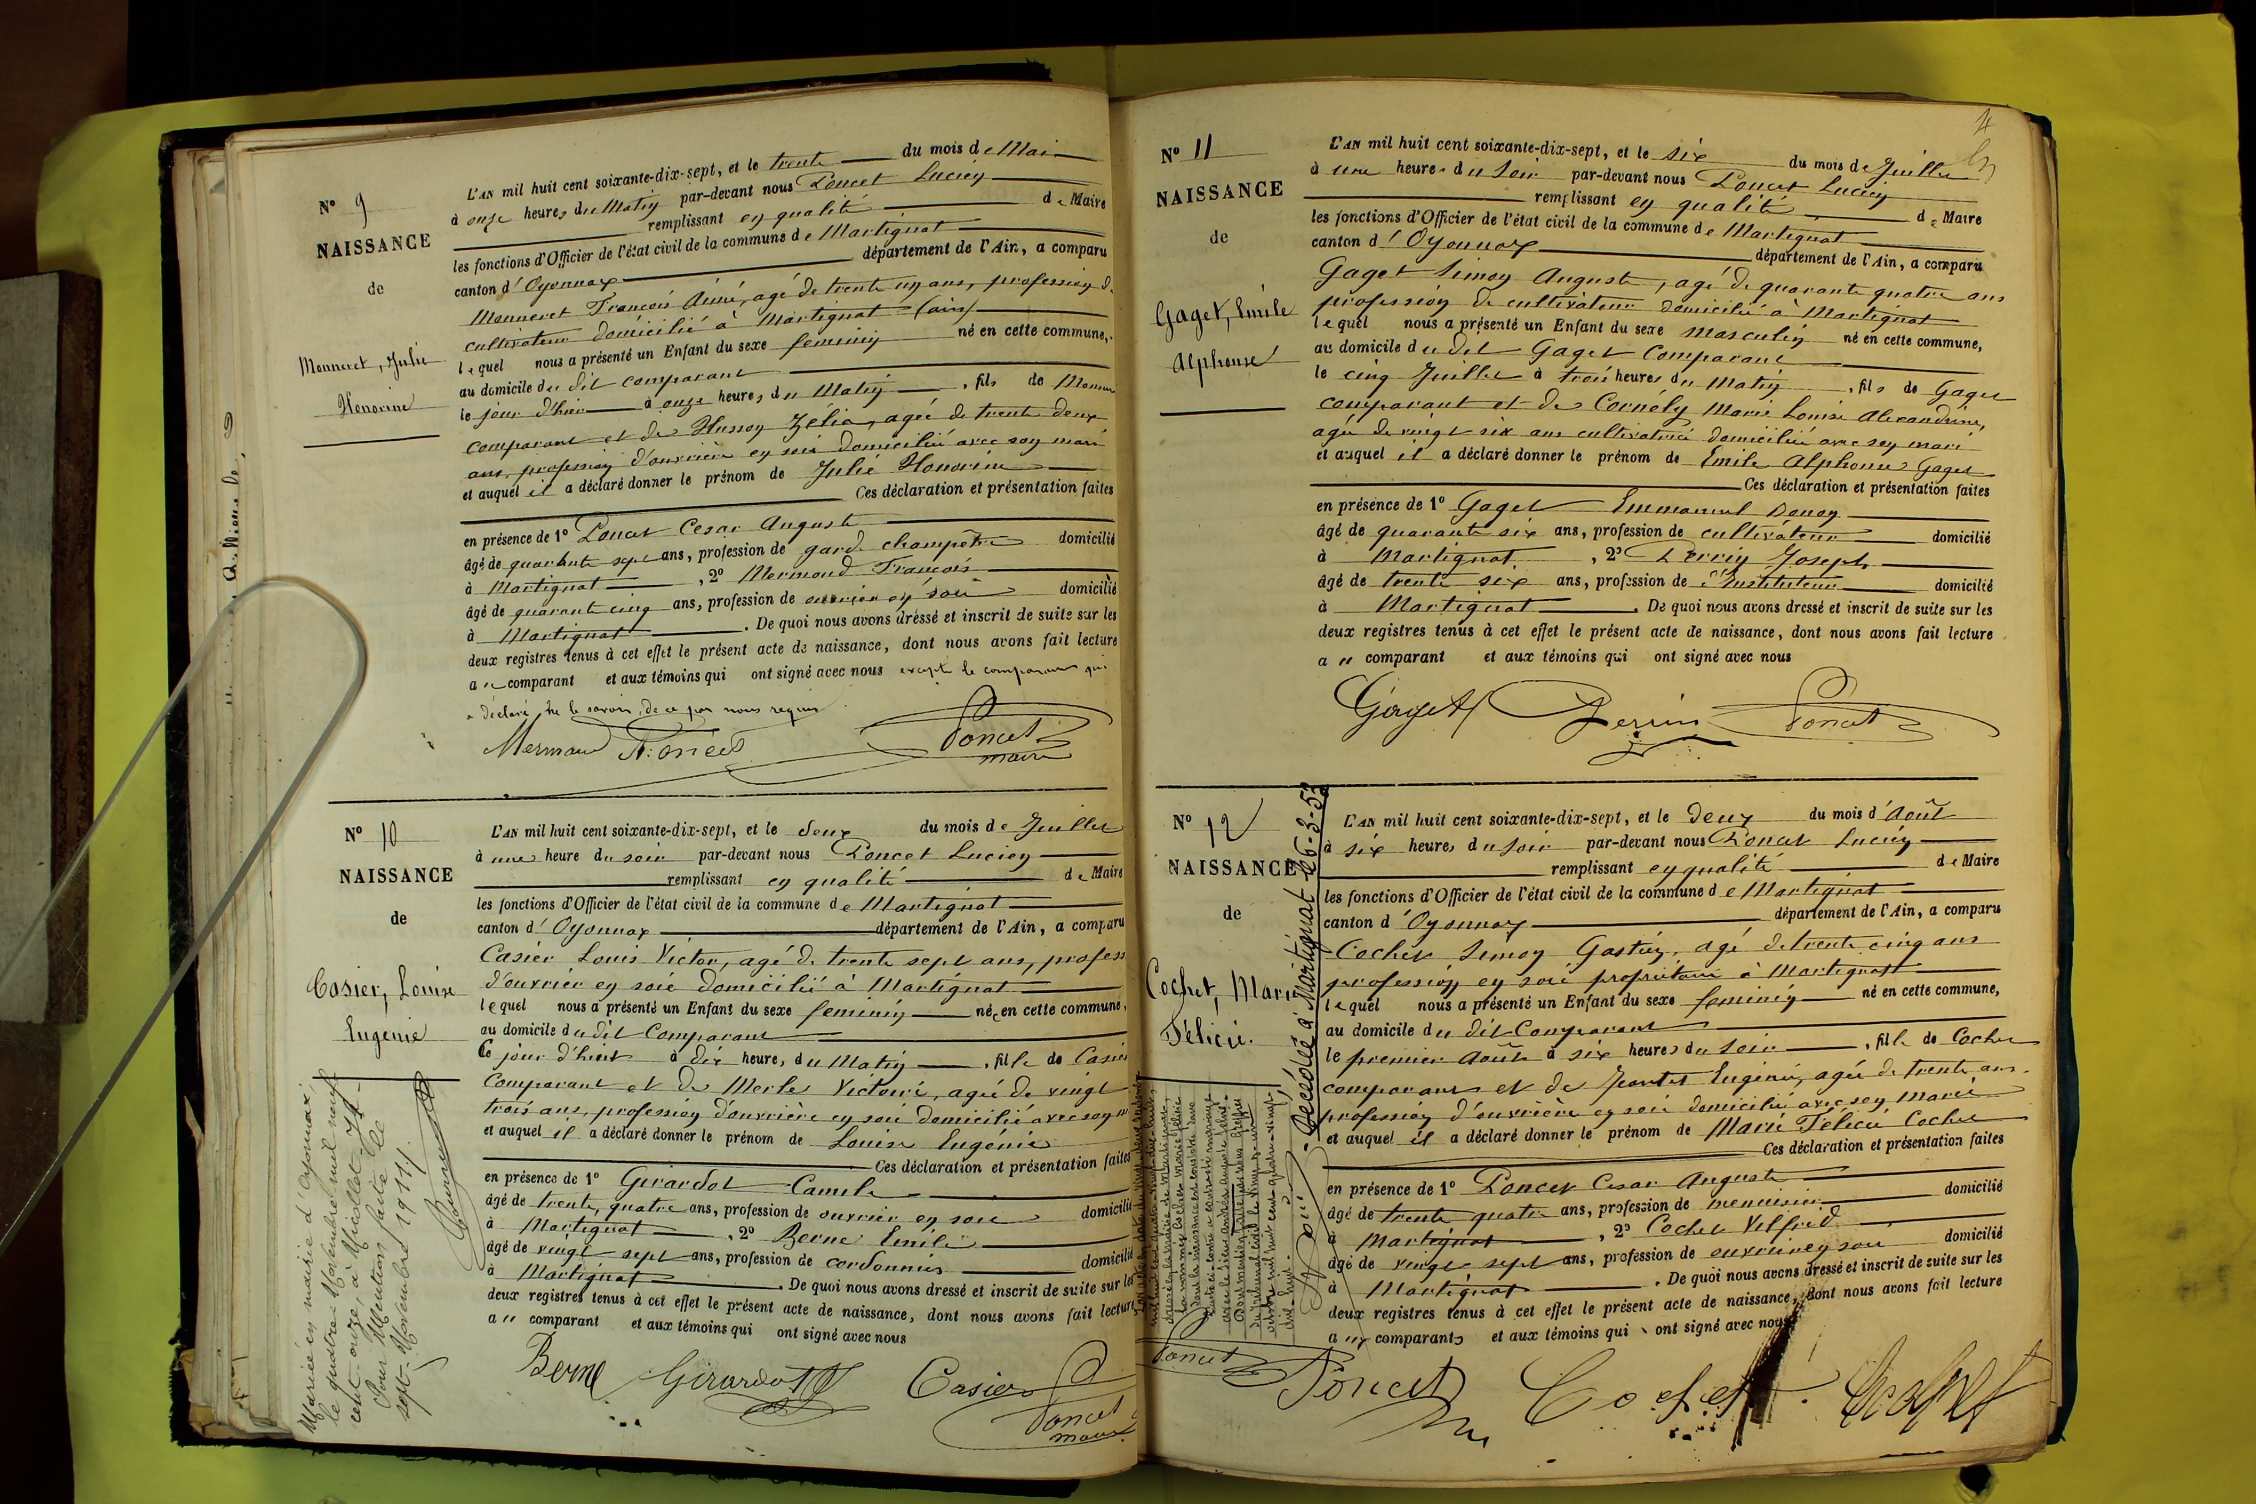 N° 9
NAISSANCE
de
Monneret, Julie
Honorine
L'AN mil huit cent soixante-dix-sept, et le trente du mois de Mai
à onze heures du Matin par-devant nous Poncet Lucien
remplissant en qualité de Maire
les fonctions d'Officier de l'état civil de la commune de Martignat
canton d'Oyonnax département de l'Ain, a comparu
Monneret François Aimé, agé de trente un ans, profession de
cultivateur domicilié à Martignat (ain)
lequel nous a présenté un Enfant du sexe feminin né en cette commune,
au domicile du dit comparant
le jour d'hier à onze heures du Matin, fils de Monneret
comparant et de Husson Zélia, agée de trente deux
ans, profession d'ouvrière en soie domiciliée avec son mari
et auquel il a déclaré donner le prénom de Julie Honorine
Ces déclaration et présentation faites
en présence de 1° Poncet Cesar Auguste
âgé de quarante sept ans, profession de garde champêtre domicilié
à Martignat, 2° Mermond François
âgé de quarante cinq ans, profession de ouvrier en soie domicilié
à Martignat. De quoi nous avons dréssé et inscrit de suite sur les
deux registres tenus à cet effet le présent acte de naissance, dont nous avons fait lecture
au comparant et aux témoins qui ont signé avec nous excepté le comparant qui
a déclaré ne le savoir, de ce par nous requis
Mermond Poncet Poncet
maire
N° 10
NAISSANCE
de
Casier, Louise
Eugénie
L'AN mil huit cent soixante-dix-sept, et le deux du mois de Juillet
à une heure du soir par-devant nous Poncet Lucien
remplissant en qualité de Maire
les fonctions d'Officier de l'état civil de la commune de Martignat
canton d'Oyonnax département de l'Ain, a comparu
Casier Louis Victor, agé de trente sept ans, profess
d'ouvrier en soie domicilié à Martignat
lequel nous a présenté un Enfant du sexe feminin née en cette commune,
au domicile du dit Comparant
le jour d'hier à dix heures du Matin, fille de Casier
comparant et de Merle Victoire, agée de vingt
trois ans, profession d'ouvrière en soie domicilié avec son m
et auquel il a déclaré donner le prénom de Louise Eugénie
Ces déclaration et présentation faites
en présence de 1° Girardot Camile
âgé de trente, quatre ans, profession de ouvrier en soie domicilié
à Martignat, 2° Berne Emile
âgé de vingt sept ans, profession de cordonnier domicilié
à Martignat. De quoi nous avons dressé et inscrit de suite sur les
deux registres tenus à cet effet le présent acte de naissance, dont nous avons fait lecture
au comparant et aux témoins qui ont signé avec nous
Berne Girardot Casier Poncet
maire
Mariée en mairie d'Oyonnax,
le quatre Novembre mil neuf
cent onze, à Miollet
Pour Mention faite le
sept Novembre 1911.
N° 11
NAISSANCE
de
Gaget, Emile
Alphonse
4
L'AN mil huit cent soixante-dix-sept, et le six du mois de Juillet
à une heures du soir par-devant nous Poncet Lucien
remplissant en qualité de Maire
les fonctions d'Officier de l'état civil de la commune de Martignat
canton d'Oyonnax département de l'Ain, a comparu
Gaget Simon Auguste, agé de quarante quatre ans
profession de cultivateur domicilié à Martignat
lequel nous a présenté un Enfant du sexe masculin né en cette commune,
au domicile du dit Gaget Comparant
le cinq Juillet à trois heures du Matin, fils de Gaget
comparant et de Cornély Marie Louise Alexandrine,
agée de vingt six ans cultivatrice domiciliée avec son mari
et auquel il a déclaré donner le prénom de Emile Alphonse Gaget
Ces déclaration et présentation faites
en présence de 1° Gaget Emmanuel
âgé de quarante six ans, profession de cultivateur domicilié
à Martignat, 2° Perrin Joseph
âgé de trente six ans, profession de Instituteur domicilié
à Martignat. De quoi nous avons dressé et inscrit de suite sur les
deux registres tenus à cet effet le présent acte de naissance, dont nous avons fait lecture
au comparant et aux témoins qui ont signé avec nous
Gaget Perrin Poncet
N° 12
NAISSANCE
de
Cochet, Marie
Félicie.
Décédée à Martignat le 6-3-53
L'AN mil huit cent soixante-dix-sept, et le deux du mois d'Août
à six heures du soir par-devant nous Poncet Lucien
remplissant en qualité de Maire
les fonctions d'Officier de l'état civil de la commune de Martignat
canton d'Oyonnax département de l'Ain, a comparu
Cochet Simon Gustin, agé de trente cinq ans
profession en soie propriétaire à Martignat
lequel nous a présenté un Enfant du sexe feminin né en cette commune,
au domicile du dit Comparant
le premier Août à six heures du soir, fille de Cochet
comparant et de Jeantet Eugénie, agée de trente ans.
profession d'ouvrière en soie domicilié avec son Marie
et auquel il a déclaré donner le prénom de Marie Félicie Cochet
Ces déclaration et présentation faites
en présence de 1° Poncet Cesar Auguste
âgé de trente quatre ans, profession de menuisier domicilié
à Martignat, 2° Cochet Vilfrid
âgé de vingt sept ans, profession de ouvrier en soie domicilié
à Martignat. De quoi nous avons dressé et inscrit de suite sur les
deux registres tenus à cet effet le présent acte de naissance, dont nous avons fait lecture
aux comparants et aux témoins qui ont signé avec nous
Poncet Poncet Cochet Cochet